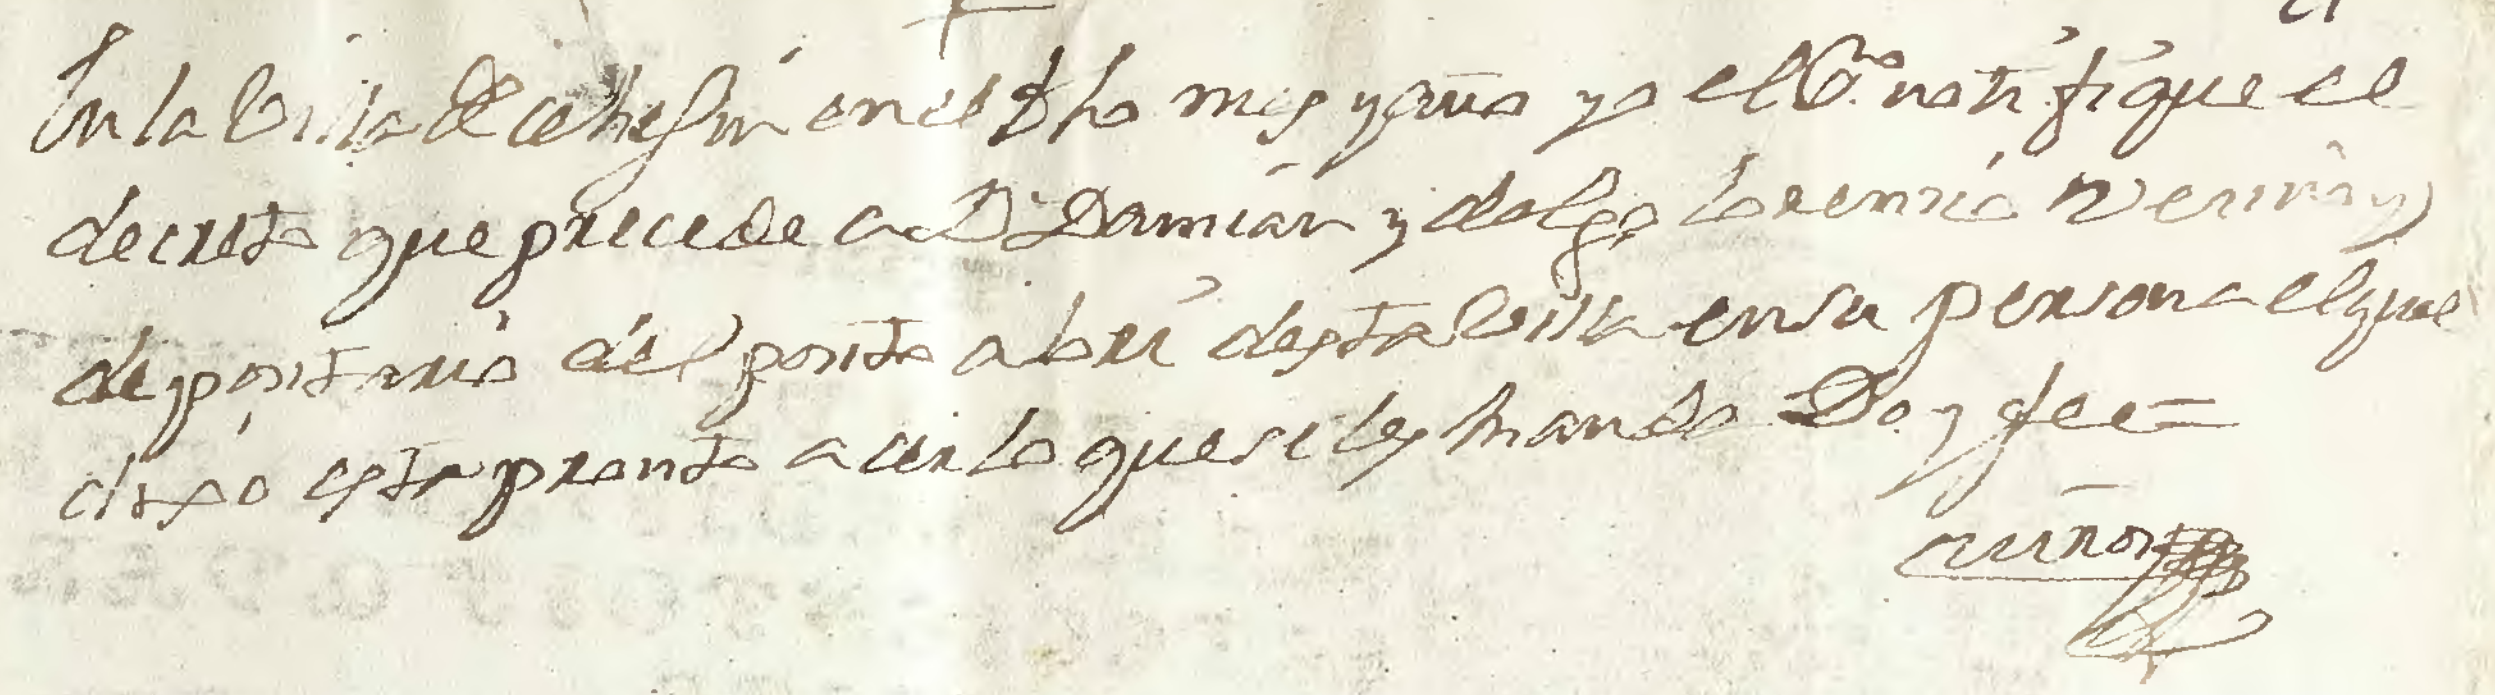 En la Villa de cehegin en el dho mes y año yo el Esno notifique el
decreto que precede a Dn Damian ydalgo
depositario del posito alori desta Villa en su persona el que
dixo esta pronto acer lo que se les manda Doy fee=